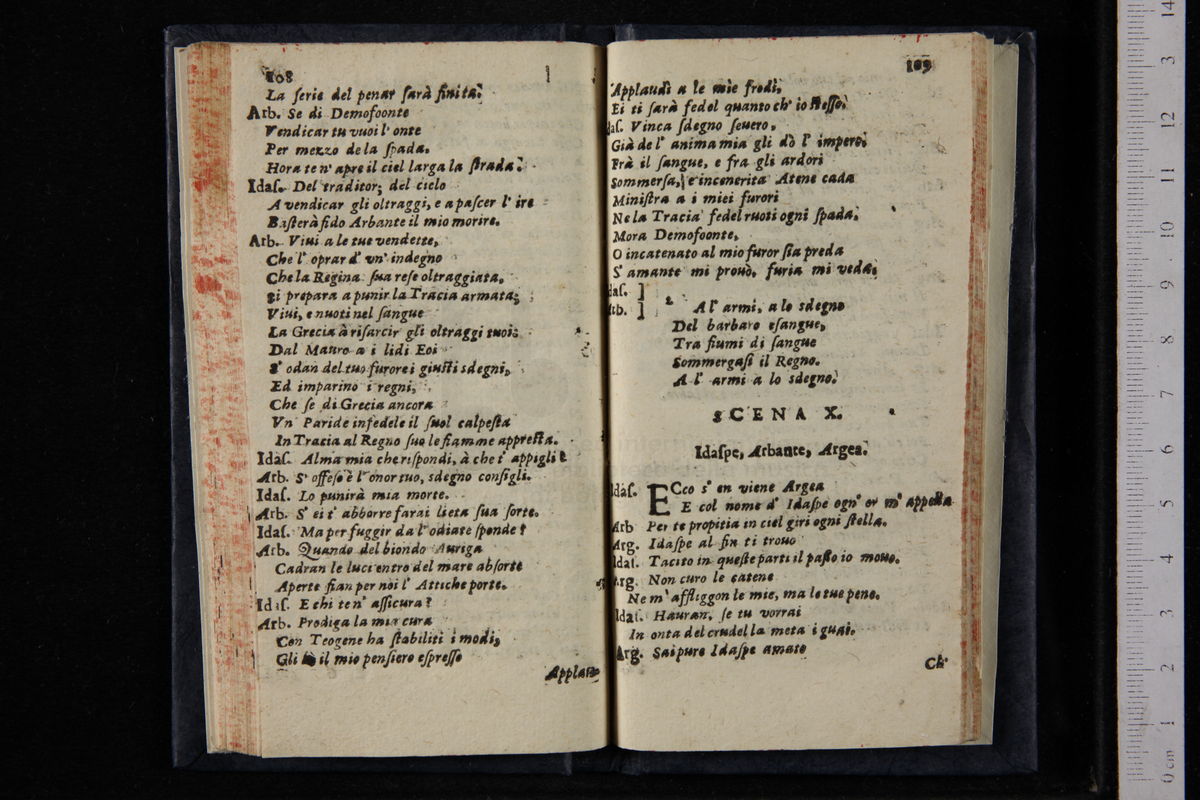 108
La ſerie del penar ſarà finita.
Arb. Se di Demofoonte
Vendicar tu vuoi l' onte
Per mezzo de la ſpada.
Hora te n' apre il ciel larga la ſtrada.
Idaſ. Del traditor; del cielo
A vendicar gli oltraggi, e a paſcer l' ire
Baſterà fido Arbante il mio morire.
Arb. Viui a le tue vendette,
Che l' oprar d' vn' indegno
Che la Regina ſua reſe oltraggiata,
Si prepara a punir la Tracia armata;
Viui, e nuoti nel ſangue
La Grecia à riſarcir gli oltraggi tuoi;
Dal Mauro a i lidi Eoi
S' odan del tuo furore i giuſti sdegni,
Ed imparino i regni,
Che ſe di Grecia ancora
Vn Paride infedele il ſuol calpeſta
In Tracia al Regno ſuo le fiamme appreſta.
Idaſ. Alma mia che riſpondi, à che t' appigli?
Arb. S' offeſo è l' onor tuo, sdegno conſigli.
Idaſ. Lo punirà mia morte.
Arb. S' ei t' abborre farai lieta ſua ſorte.
Idaſ. Ma per fuggir da l' odiate ſponde?
Arb. Quando del biondo Auriga
Cadran le luci entro del mare abſorte
Aperte fian per noi l' Attiche porte.
Idaſ. E chi te n' aſſicura?
Arb. Prodiga la mia cura
Con Teogene ha ſtabiliti i modi,
Gli il mio penſiero eſpreſſo
Applau-
109
Applaudì a le mie frodi,
Ei ti ſarà fedel quanto ch' io ſteſſo.
daſ. Vinca ſdegno ſeuero,
Già de l' anima mia gli dò l' impero.
Frà il ſangue, e fra gli ardori
Sommerſa, e incenerita Atene cada
Miniſtra a i miei furori
Ne la Tracia fedel ruoti ogni ſpada.
Mora Demofoonte,
O incatenato al mio furor ſia preda
S' amante mi prouò, furia mi veda.
daſ. ]
rb. ] 2. A l' armi, a lo sdegno
Del barbaro eſangue,
Tra fiumi di ſangue
Sommergaſi il Regno.
A l' armi a lo sdegno.
SCENA X.
Idaſpe, Arbante, Argea.
Idaſ. ECco s' en viene Argea
E col nome d' Idaſpe ogn' or m' appella
Arb Per te propitia in ciel giri ogni ſtella.
Arg. Idaſpe al fin ti trouo
Idaſ. Tacito in queſte parti il paſſo io mouo.
Arg. Non curo le catene
Ne m' affliggon le mie, ma le tue pene.
Idaſ. Hauran, ſe tu vorrai
In onta del crudel la meta i guai.
Arg. Sai pure Idaſpe amato
Ch'